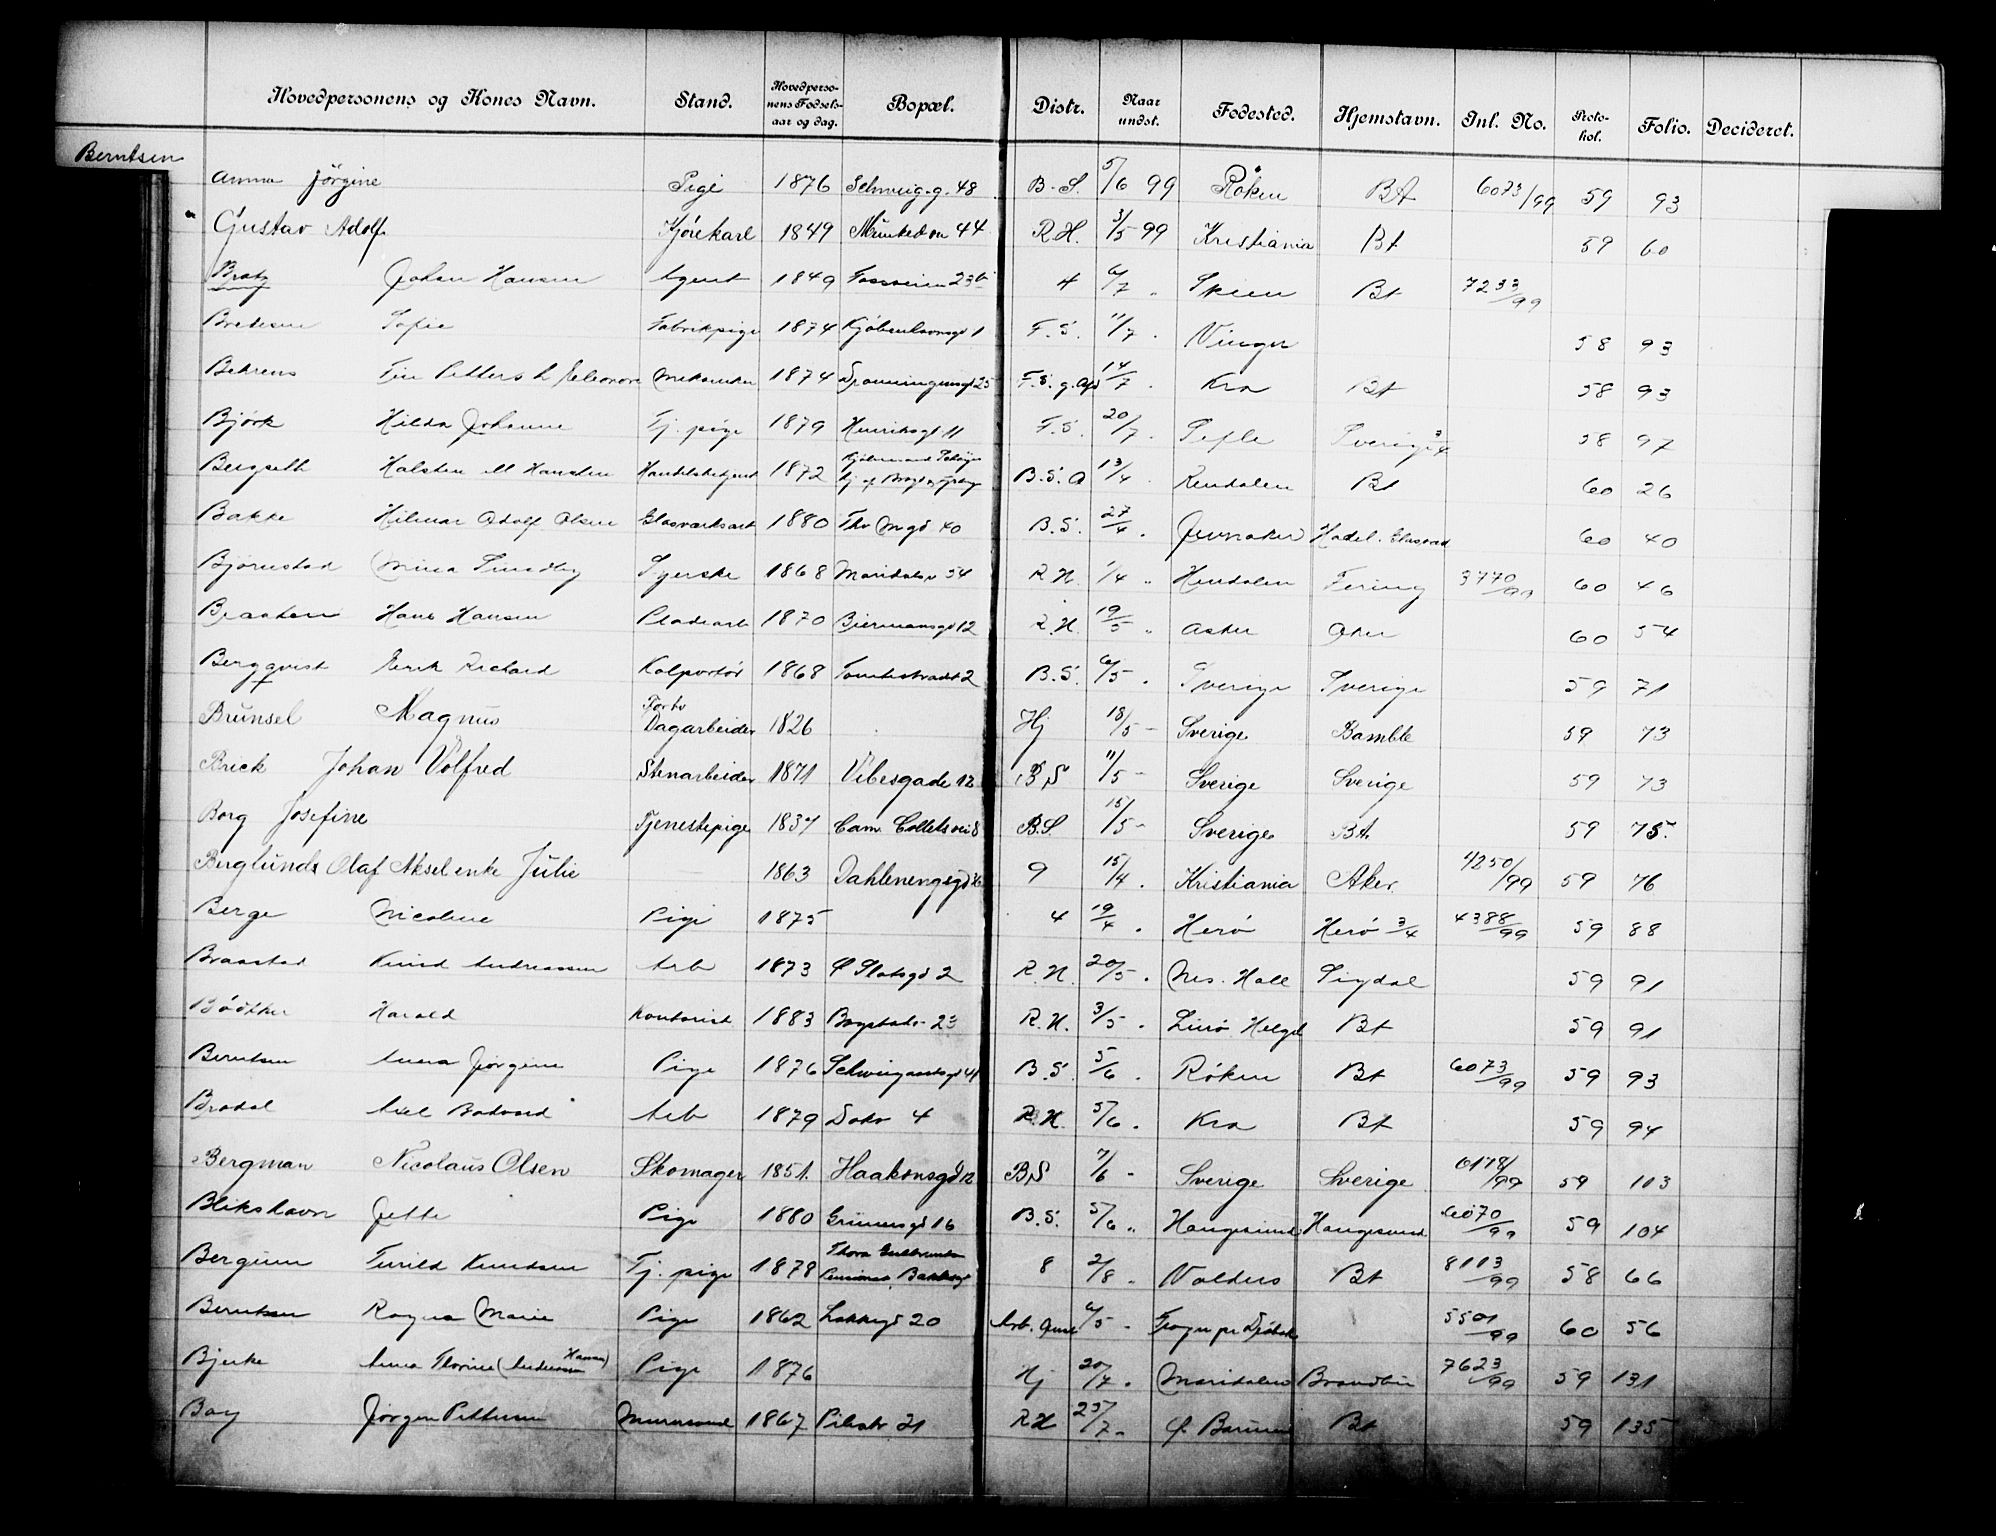 Hovedpersonens og Kones Navn. Stand. Hovedperso-nens Fødsels-aar og dag. Bopæl. Distr. Naar undst. Fødested. Hjemstavn. Inl. No. Proto-kol. Folio. Decideret.
Berntsen
Anna Jørgine Pige 1876 Schweig.g. 48 B.S. 5/6 99 Røken Bt 6073/99 59 93
Gustav Adolf Kjørekarl 1849 Munkedvn 44 R.H. 3/5 99 Kristiania Bt 59 60
Bratz Johan Hansen Agent 1849 Fossveien 23b 4 6/7 Skien Bt 7233/99
Bredesen Sofie Fabrikpige 1874 Kjøbenhavnsgd 1 F.S. 11/7 Vinger 58 93
Behrens Petters Eleonore Mekaniker 1874 25 F.S. 14/7 Kra Bt 58 93
Bjørk Hilda Johanne Tj. pige 1879 Henriksgd 11 F.S. 20/7 Gefle Sverige 58 97
Bergseth Halsten M Hansten Handelsbetjent 1872 B.S. 13/4 Rendalen Bt 60 26
Bakke Hilmar Adolf Olsen Glasværksarb 1880 Thv Mgd 40 B.S. 27/4 Jevnaker Hadel. Glasværk 60 40
Bjørnstad Mina Syerske 1868 Maridalsv 54 R.H. 1/4 3770/99 60 46
Braaten Hans Hansen Pladsarb 1870 Biermansgd 12 R.H. 19/5 Asker Aker 60 54
Bergqvist Erik Richard Kolportør 1868 Tomtestrædet 2 B.S. 6/5 Sverige Sverige 59 71
Brunsel Magnus Forhv Dagarbeider 1826 Hj 18/5 Sverige Bamble 59 73
Brick Johan Volfred Stenarbeider 1871 Vibesgade 12 B.S 11/5 Sverige Sverige 59 73
Borg Josefine Tjenestepige 1837 Cam. Colletsvei 8 B.S. 15/5 Sverige Bt. 59 75
Berglunds Olaf Aksel enke Julie 1863 Dahlenengsgd 9 15/4 Kristiania Aker 4250/99 59 76
Berge Nicoline Pige 1875 4 19/4 Herø Herø 3/4 4388/99 59 88
Braastad Knud Andreassen Arb 1873 Ø Slotsgd 2 R.H. 20/5 Nes. Hall Sigdal 59 91
Bödtker Harald Kontorist 1883 Bogstadv 23 R.H. 3/5 Helgel Bt 59 91
Berntsen Anna Jørgine Pige 1876 Schweigaardsgd B.S. 5/6 Røken Bt 6073/99 59 93
Brodal Axel Botvard Arb 1879 4 R.H. 5/6 Kra Bt 59 94
Bergman Nicolaus Olsen Skomager 1851. Haakonsgd 12 BS 7/6 Sverige Sverige 6178/99 59 103
Blikshavn Jette Pige 1880 Grünersgd 16 B.S. 5/6 Haugesund Haugesund 6070/99 59 104
Bergum Turild Knudsen Tj. pige 1878 Thora Gulbrandsen Pensionat 8 2/8 Valders Bt 8113/99 58 66
Berntsen Ragna Marie Pige 1862 Lakkegd 20 6/5 5501/99 60 56
Bjerke Anna Thorine (Andersen Hansen) Pige 1876 Hj 20/7 Maridalen Brandbu 7623/99 59 131
Bay Jørgen Pettersen Murersvend 1867 Pilestr 21 R.H 25/7 Ø. Bærum Bt 59 135